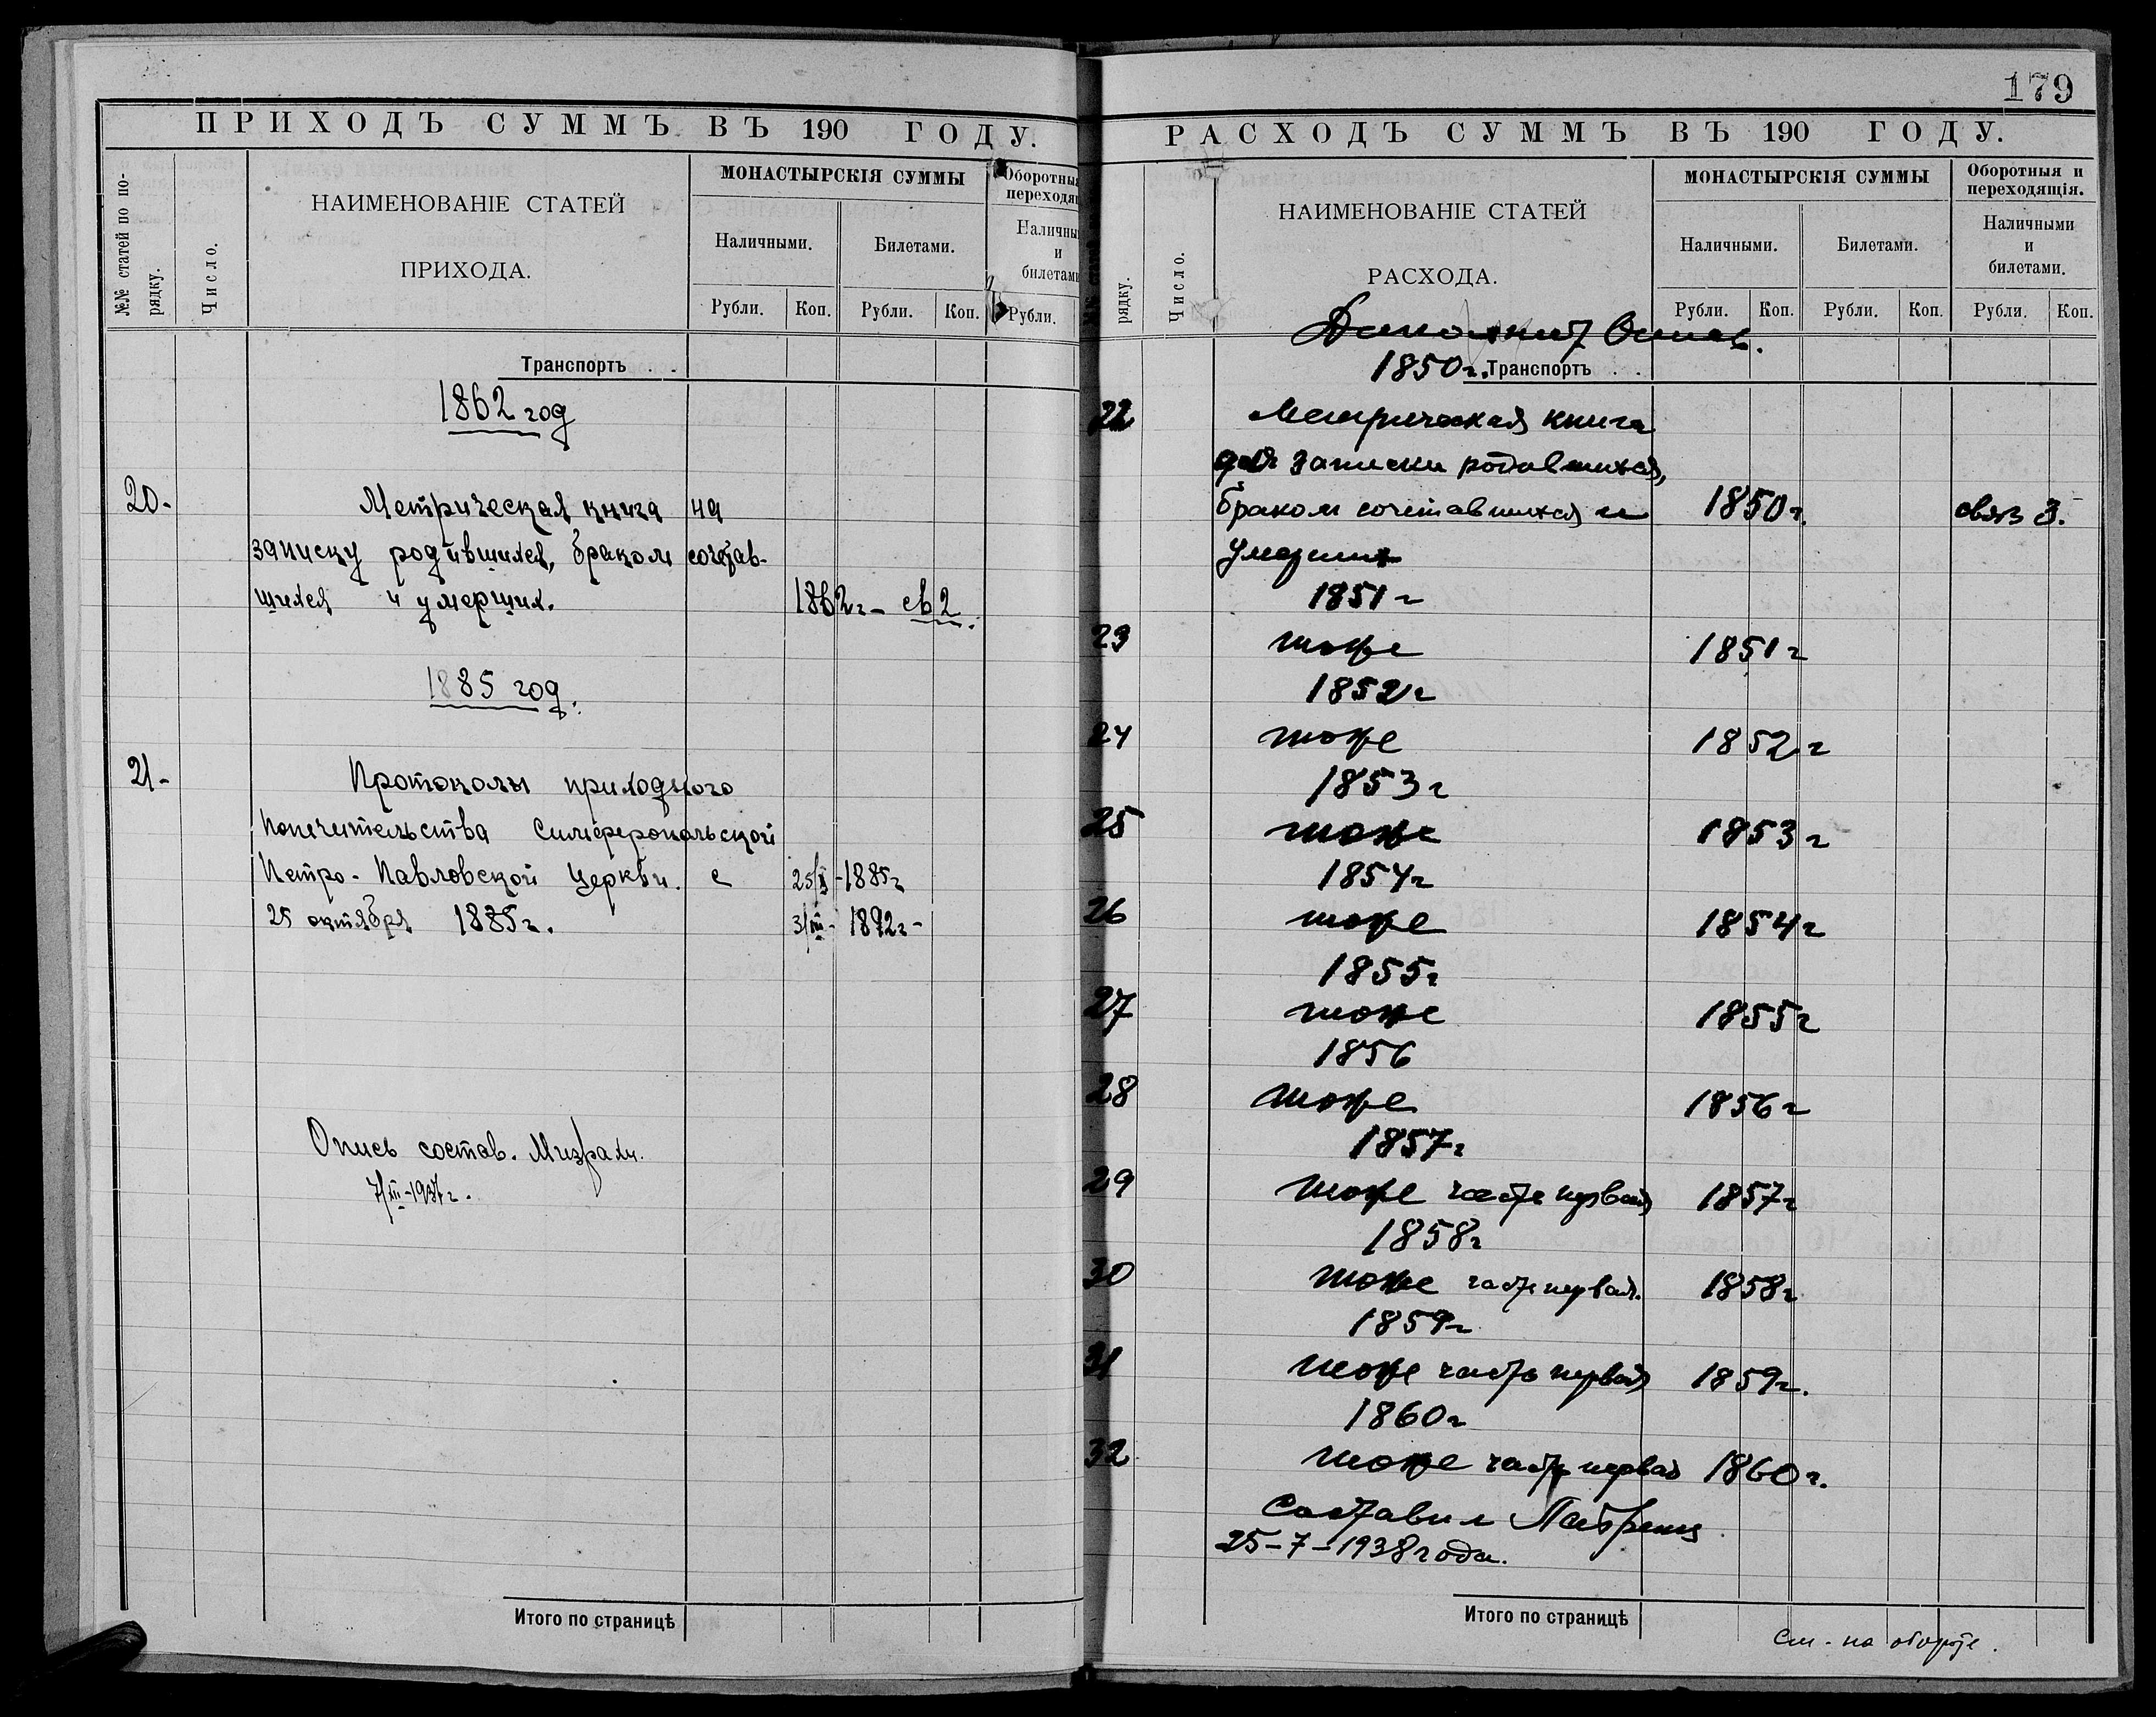 ПРИХОДЪ СУММЪ ВЪ 190 ГОДУ.
№№ статей по по-
рядку.
Число.
НАИМЕНОВАНІЕ СТАТЕЙ
ПРИХОДА.
МОНАСТЫРСКІЯ СУММЫ
Наличными.
Билетами.
Рубли.
Коп.
Рубли.
Коп.
Оборотныя
переходящ
Наличны
и
билетами
Рубли.
Транспортъ . .
1862 год
20- Метрическая книга на
записку родившихся, браком сочетав-
шихся и умерших. 1862г - св 2.
1885 год.
21- Протоколы приходного
Попечительства Симферопольской
Петро-Павловской церкви. с 25/X -1885г
25 октября 1885г. 3/III - 1892г-
Опись состав. Мизрахи.
7/III-1937г.
Итого по страницѣ
179
РАСХОДЪ СУММЪ ВЪ 190 ГОДУ.
рядку.
Число.
НАИМЕНОВАНІЕ СТАТЕЙ
РАСХОДА.
МОНАСТЫРСКІЯ СУММЫ
Наличными.
Билетами.
Рубли.
Коп.
Рубли.
Коп.
Оборотныя и
переходящія.
Наличными
и
билетами.
Рубли.
Коп.
1850г. Транспортъ . .
22 Метрическая книга
для записки родившихся,
браком сочетавшихся и 1850г. связ 3.
умерших
1851г
23 тоже 1851г
1852г
24 тоже 1852г
1853г
25 тоже 1853г
1854г
26 тоже 1854г
1855г
27 тоже 1855г
1856
28 тоже 1856г
1857г
29 тоже часть первая 1857г
1858г
30 тоже часть первая. 1858г
1859г
31 тоже часть первая 1859г.
1860г
32 тоже часть первая 1860г.
Составил
25-7-1938 года.
Итого по страницѣ
См. на обороте.